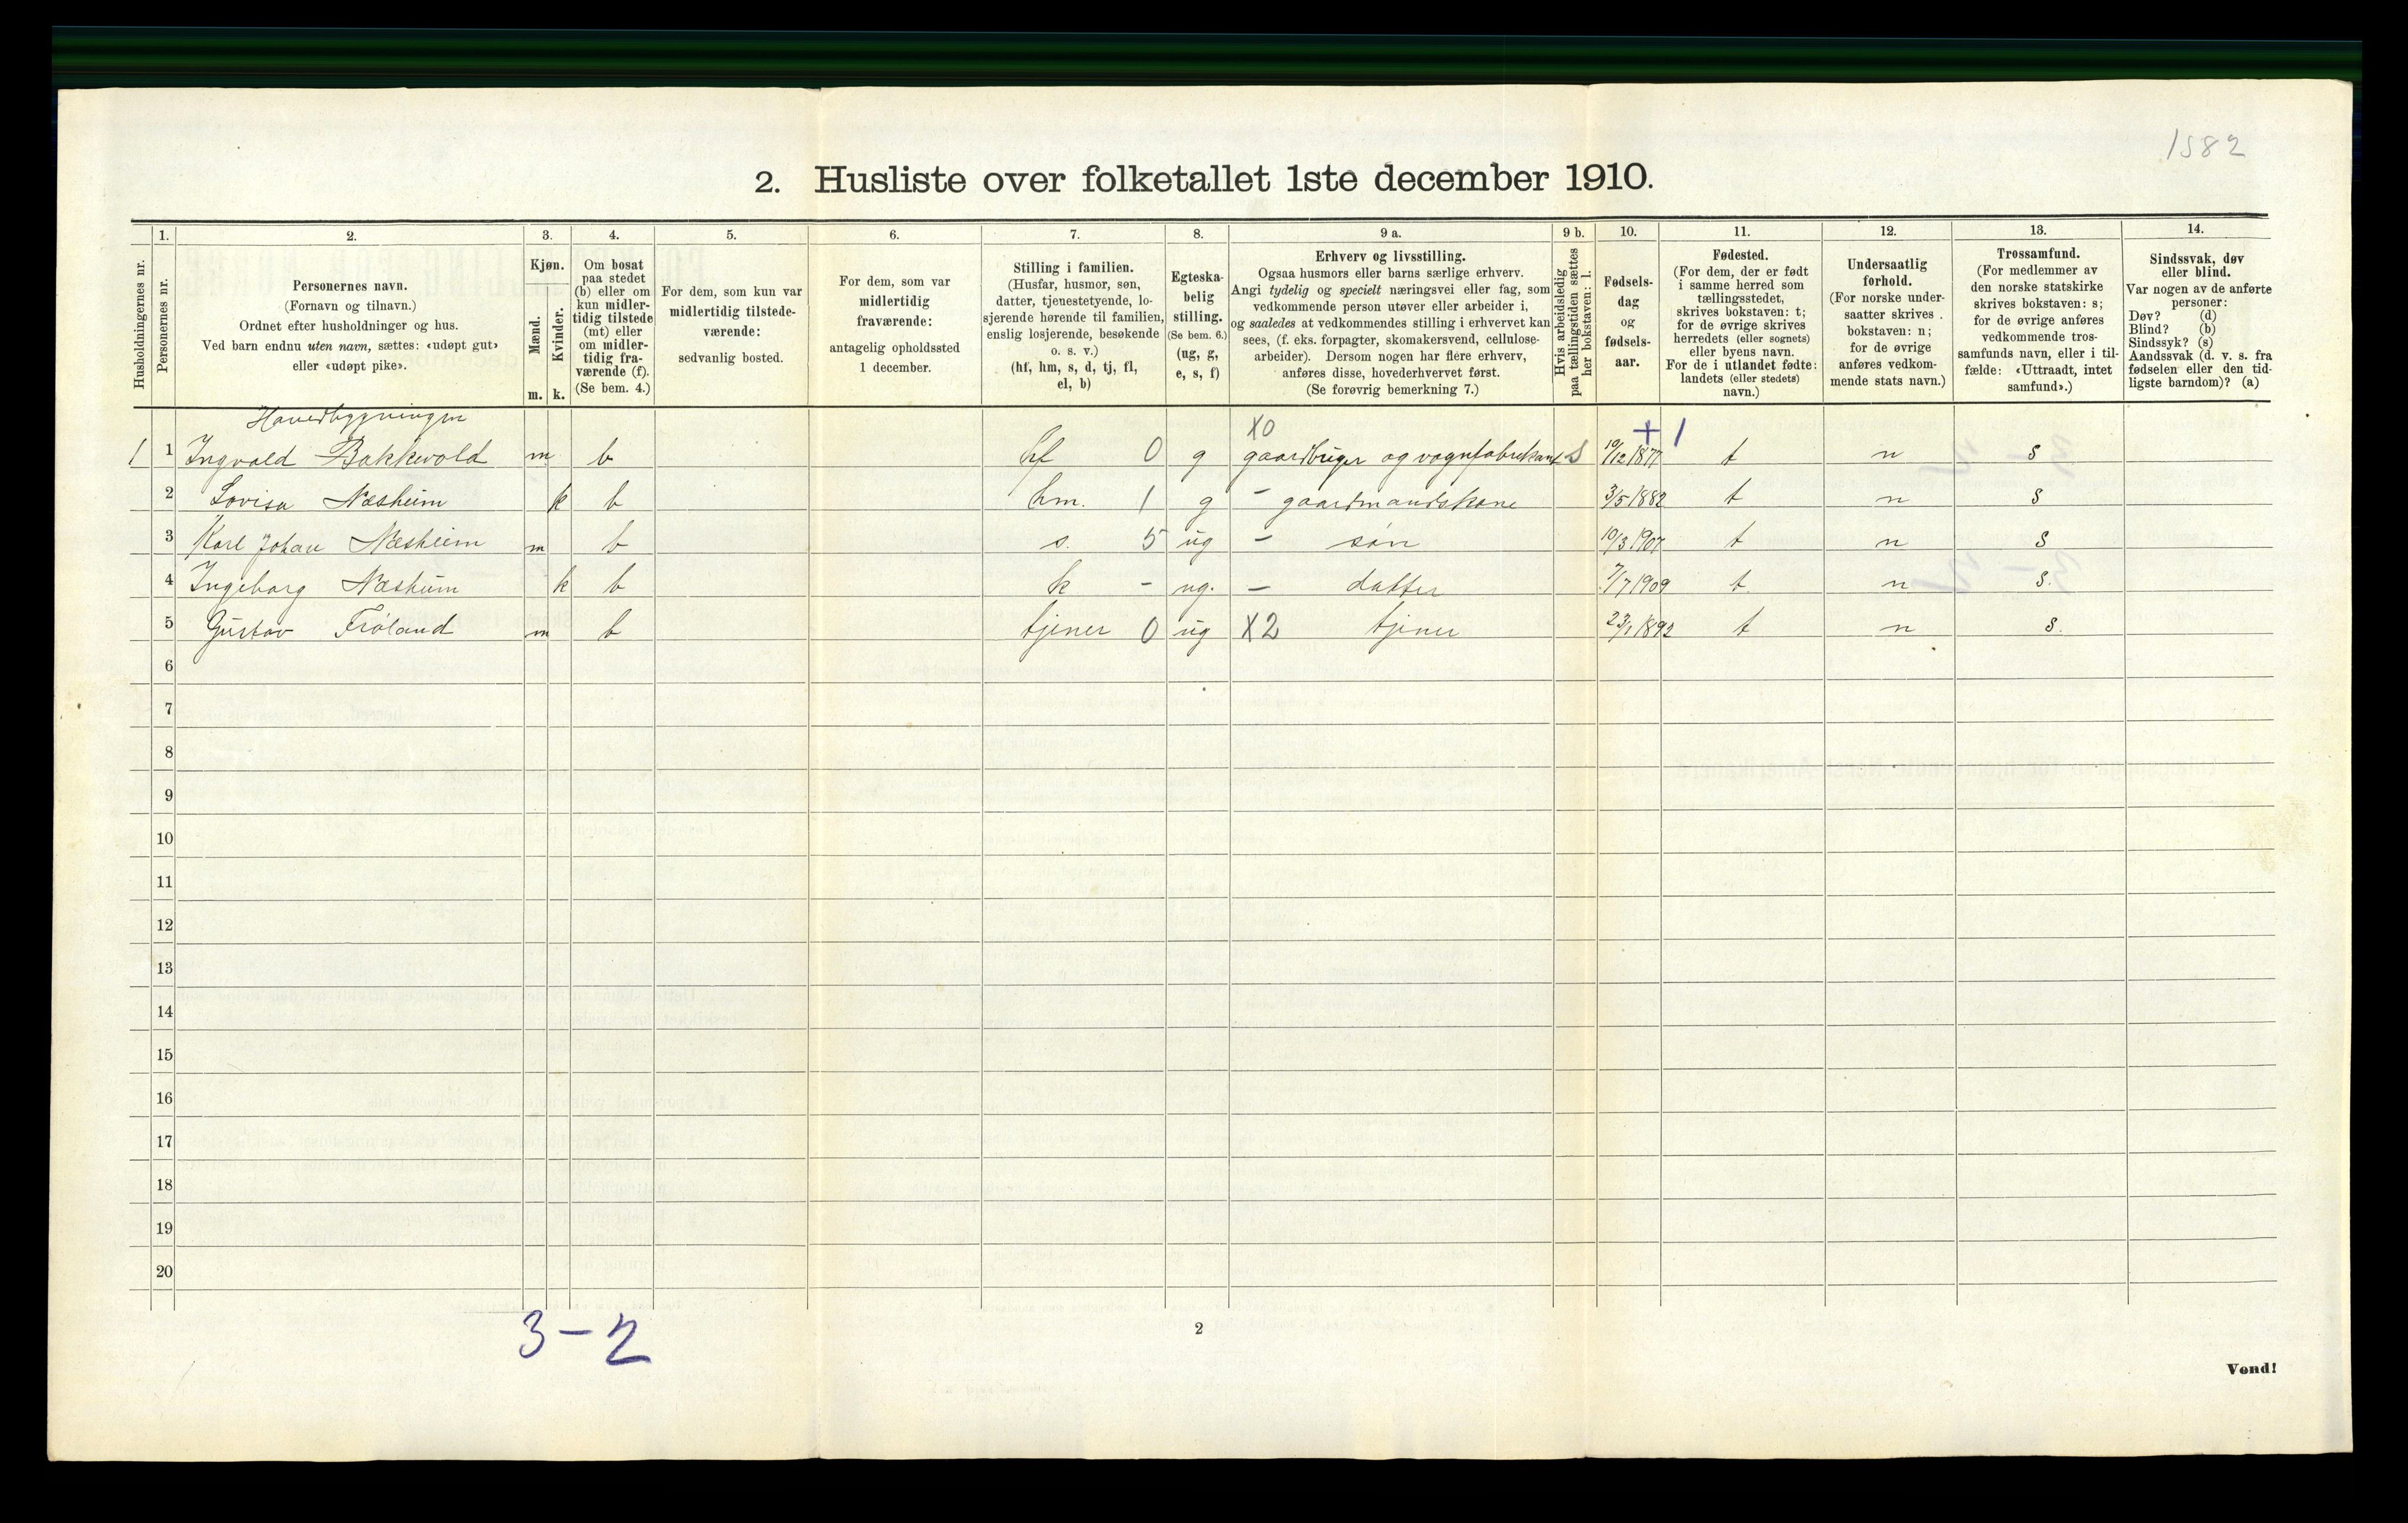 1582
2. Husliste over folketallet 1ste december 1910.
1. 2. 3. 4. 5. 6. 7. 8. 9 a. 9 b. 10. 11. 12. 13. 14.
Husholdningernes nr.
Personernes nr.
Personernes navn.
(Fornavn og tilnavn.)
Ordnet efter husholdninger og hus.
Ved barn endnu uten navn, sættes: «udøpt gut»
eller «udøpt pike».
Kjøn.
Mænd.
Kvinder.
m. k.
Om bosat
paa stedet
(b) eller om
kun midler-
tidig tilstede
(mt) eller
om midler-
tidig fra-
værende (f).
(Se bem. 4.)
For dem, som kun var
midlertidig tilstede-
værende:
sedvanlig bosted.
For dem, som var
midlertidig
fraværende:
antagelig opholdssted
1 december.
Stilling i familien.
(Husfar, husmor, søn,
datter, tjenestetyende, lo-
sjerende hørende til familien,
enslig losjerende, besøkende
o. s. v.)
(hf, hm, s, d, tj, fl,
el, b)
Egteska-
belig
stilling.
(Se bem. 6.)
(ug, g,
e, s, f)
Erhverv og livsstilling.
Ogsaa husmors eller barns særlige erhverv.
Angi tydelig og specielt næringsvei eller fag, som
vedkommende person utøver eller arbeider i,
og saaledes at vedkommendes stilling i erhvervet kan
sees, (f. eks. forpagter, skomakersvend, cellulose-
arbeider). Dersom nogen har flere erhverv,
anføres disse, hovederhvervet først.
(Se forøvrig bemerkning 7.)
Hvis arbeidsledig
paa tællingstiden sættes
her bokstaven: l.
Fødsels-
dag
og
fødsels-
aar.
Fødested.
(For dem, der er født
i samme herred som
tællingsstedet,
skrives bokstaven: t;
for de øvrige skrives
herredets (eller sognets)
eller byens navn.
For de i utlandet fødte:
landets (eller stedets)
navn.)
Undersaatlig
forhold.
(For norske under-
saatter skrives
bokstaven: n;
for de øvrige
anføres vedkom-
mende stats navn.)
Trossamfund.
(For medlemmer av
den norske statskirke
skrives bokstaven: s;
for de øvrige anføres
vedkommende tros-
samfunds navn, eller i til-
fælde: «Uttraadt, intet
samfund».)
Sindssvak, døv
eller blind.
Var nogen av de anførte
personer:
Døv? (d)
Blind? (b)
Sindssyk? (s)
Aandssvak (d. v. s. fra
fødselen eller den tid-
ligste barndom)? (a)
Hovedbygningen
X0 + 1
1 1 Ingvald Bakkevold m b hf 0 g gaardbruger og vognfabrikant S 10/12 1877 t n s
2 Lovisa Næsheim k b hm. 1 g - gaardmandskone 3/5 1882 t n s
3 Karl Johan Næsheim m b s. 5 ug - søn 10/3 1907 t n s
4 Ingeborg Næsheim k b k - ug. - datter 7/7 1909 t n s.
5 Gustav Frøland m b tjener 0 ug X2 tjener 23/1 1892 t n s.
6
7
8
9
10
11
12
13
14
15
16
17
18
19
20
3-2
2
Vend!